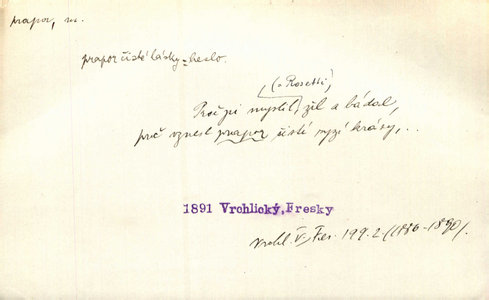 prapor, m.
prapor čisté lásky = heslo.
(o Rosetti)
Proč pi myslil, žil a bádal,
proč vznesl prapor čisté ryzí krásy, ..
1891 Vrchlický, Fresky
Vrchl. V. Fres. 199.2 (1886-1890).